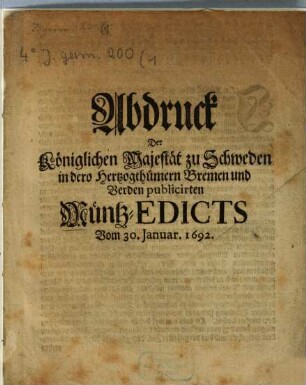 4° J. germ. 200 (1
Abdruck
Der
Königlichen Majestät zu Schweden
in dero Hertzogthümern Bremen und
Verden publicirten
Müntz-EDICTS
Vom 30. Januar. 1692.